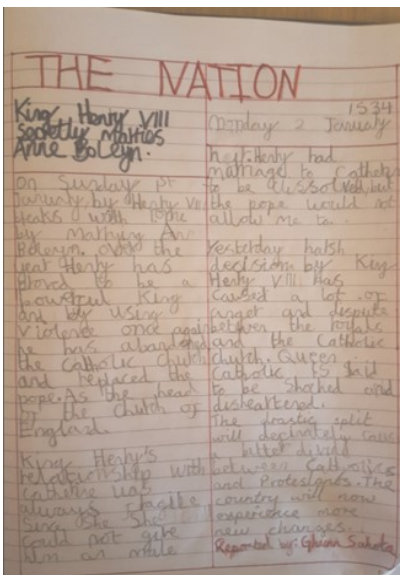 THE NATION
King Henry VIII
secretly Marries
Anne Boleyn.
On Sunday 1st
January by Henry VIII
breaks with
by marrying An
Boleyn. Over the
year Henry has
proved to be a
powerful King
and by using
Violence once again
he has abandoned
the Catholic church
and replaced the
pope. As the head
of the church of
England.
King Henry's
relationship with
catherine was
always fragile
Since She She
could not give
him a male
1534
Monday 2 January
heir. Henry had
marriage to Catherine
to be dissolved, but
the pope would not
allow me to.
Yesterday harsh
decision by King
Henry VIII has
caused a lot of
anger and dispute
between the royals
and the Catholic
church. Queen
Catholic is said
to be Shocked and
disheartened.
The drastic split
will definately cause
a bitter divide
between Catholics
and Protestants. The
country will now
experience more
new changes...
Reported by: